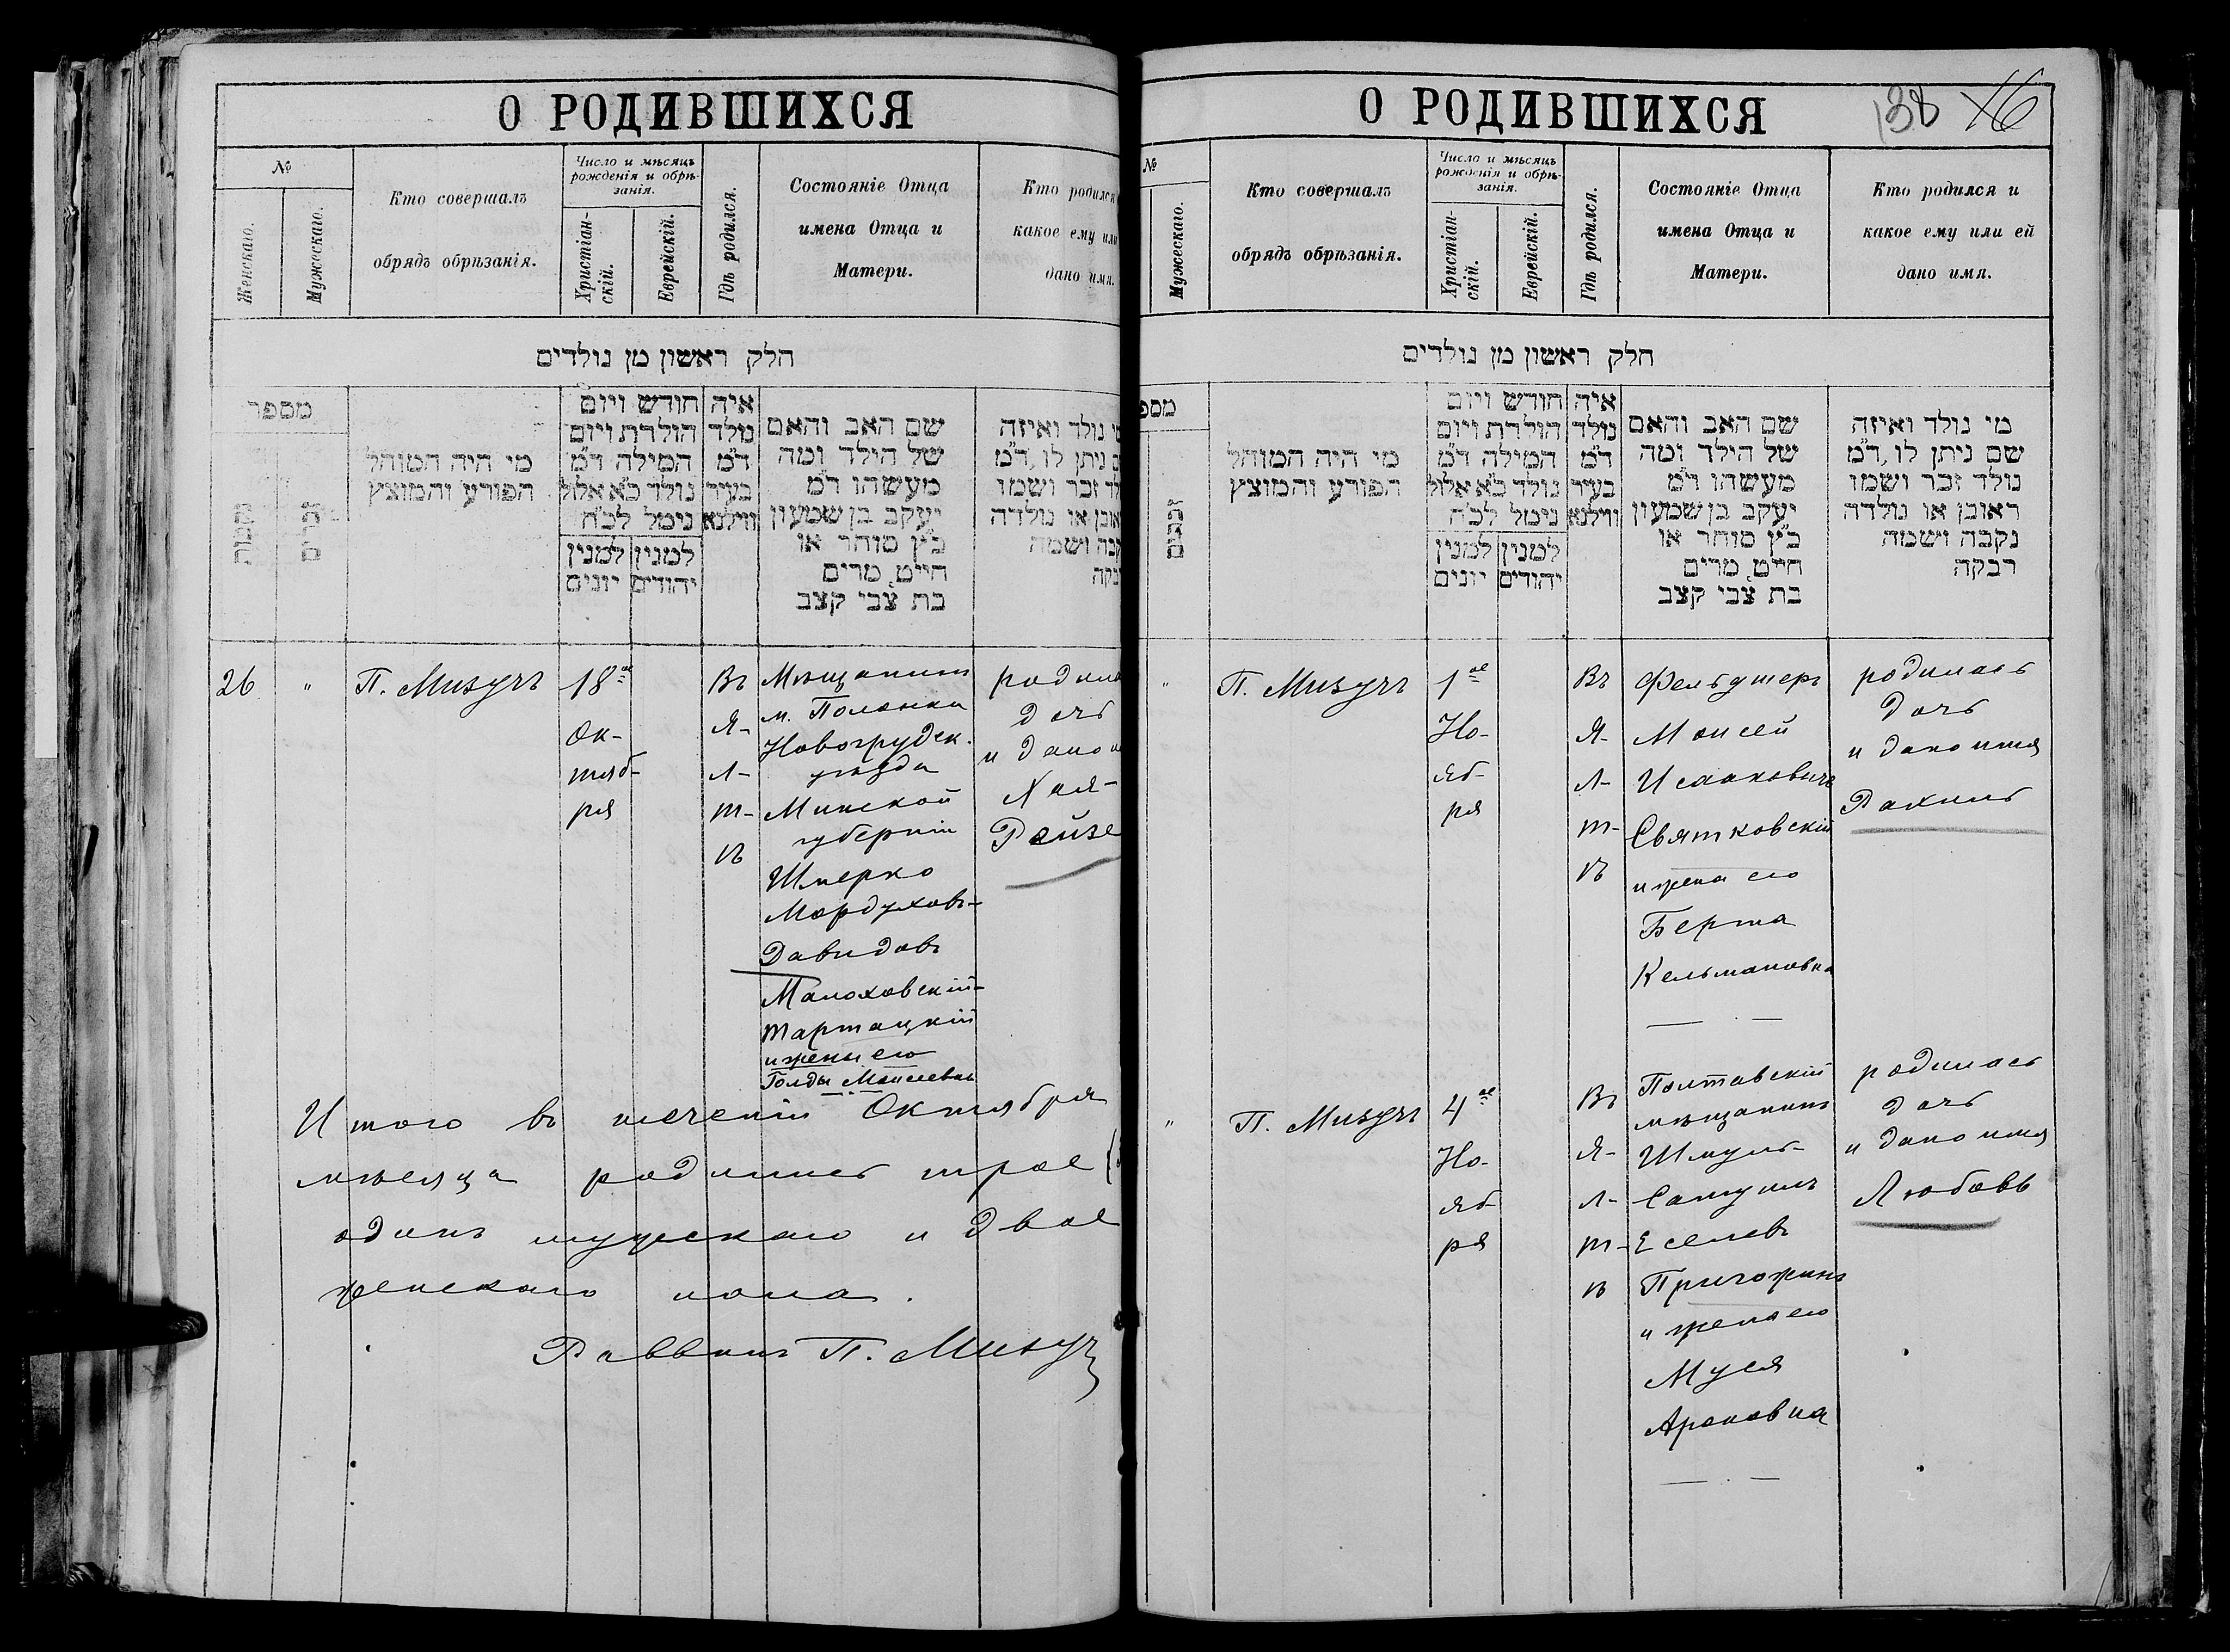 О РОДИВШИХСЯ
№
Женскаго.
Мужескаго.
Кто совершалъ
обрядъ обрѣзанія.
Число и мѣсяцъ
рожденія и обрѣ-
занія.
Христіан-
скій.
Еврейскій.
Гдѣ родился.
Состояніе Отца
имена Отца и
Матери.
Кто родился
какое ему или
дано имя.
חלק ראשון מן נולדים
מספר
נקבות
זכרים
מי היה המוהל
הפורע והמוצץ
חודש ויום
הולדת ויום
המילה ד״מ
נולד כ״א אלול
נימל לכ״ח
למנין יהודים
למנין יונים
איה
נולד
ד״מ
בעיר
ווילנא
שם האב והאם
של הילד ומה
מעשהו ד״מ
יעקב בן שמעון
כ״ץ סוחר או
חייט, מרים
בת צבי קצב
נולד ואיזה
ניתן לו, ד״מ
זכר ושמו
או נולדה
ושמה
26
"
П. Мизучъ
18ое
Ок-
тяб-
ря
Въ
Я-
л-
т-
ѣ
Мѣщанинъ
м. Полонки
Новогрудск.
уѣзда
Минской
губерніи
Шмерко
Мордухов-
Давидовъ
Малоховскій-
Тартацкій
и жены его
Голды Моисеевны
родила
дочь
и дано
Хая-
Рейзе
Итого въ теченіи Октября
мѣсяца родилось трое
одинъ мужескаго и двое
женскаго пола.
Раввинъ П. Мизучъ
О РОДИВШИХСЯ
138 76
№
Мужескаго.
Кто совершалъ
обрядъ обрѣзанія.
Число и мѣсяцъ
рожденія и обрѣ-
занія.
Христіан-
скій.
Еврейскій.
Гдѣ родился.
Состояніе Отца
имена Отца и
Матери.
Кто родился и
какое ему или ей
дано имя.
חלק ראשון מן נולדים
מספ
זכרים
מי היה המוהל
הפורע והמוצץ
חודש ויום
הולדת ויום
המילה ד״מ
נולד כ״א אלול
נימל לכ״ח
למנין יהודים
למנין יונים
איה
נולד
ד״מ
בעיר
ווילנא
שם האב והאם
של הילד ומה
מעשהו ד״מ
יעקב בן שמעון
כ״ץ סוחר או
חייט, מרים
בת צבי קצב
מי נולד ואיזה
שם ניתן לו, ד״מ
נולד זכר ושמו
ראובן או נולדה
נקבה ושמה
רבקה
"
П. Мизучъ
1ое
Но-
яб-
ря
Въ
Я-
л-
т-
ѣ
Фельдшеръ
Моисей
Исааковичъ
Святковскій
и жена его
Берта
Кельмановна
родилась
дочь
и дано имя
Рахиль
"
П. Мизучъ
4ое
Но-
яб-
ря
Въ
Я-
л-
т-
ѣ
Полтавскій
мѣщанинъ
Шмуль-
Самуилъ
Еселевъ
Пригожинъ
и жена его
Муся
Ароновна
родилась
дочь
и дано имя
Любовь